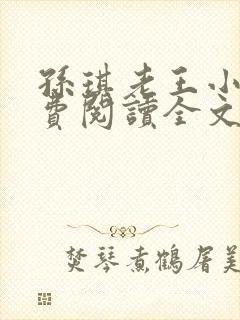 孫琪老王小
費閱讀全文
焚琴煮鶴屠美